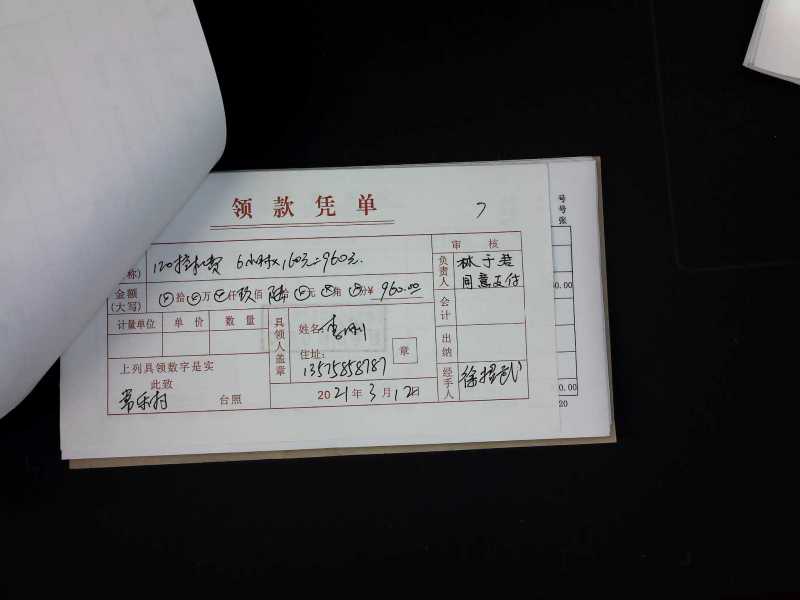 领款凭单
7
审核
称)
120挖机费 6小时×160元=960元.
负责人
同意支付
金额
(大写)
拾万仟玖佰陆拾元角分¥ 960.00
会计
计量单位 单价 数量
具领人盖章
姓名:李刚
住址:
13575858787
章
出纳
上列具领数字是实
此致
常乐村 台照
2021年3月12日
经手人
号
号
张
0.00
0.00
20